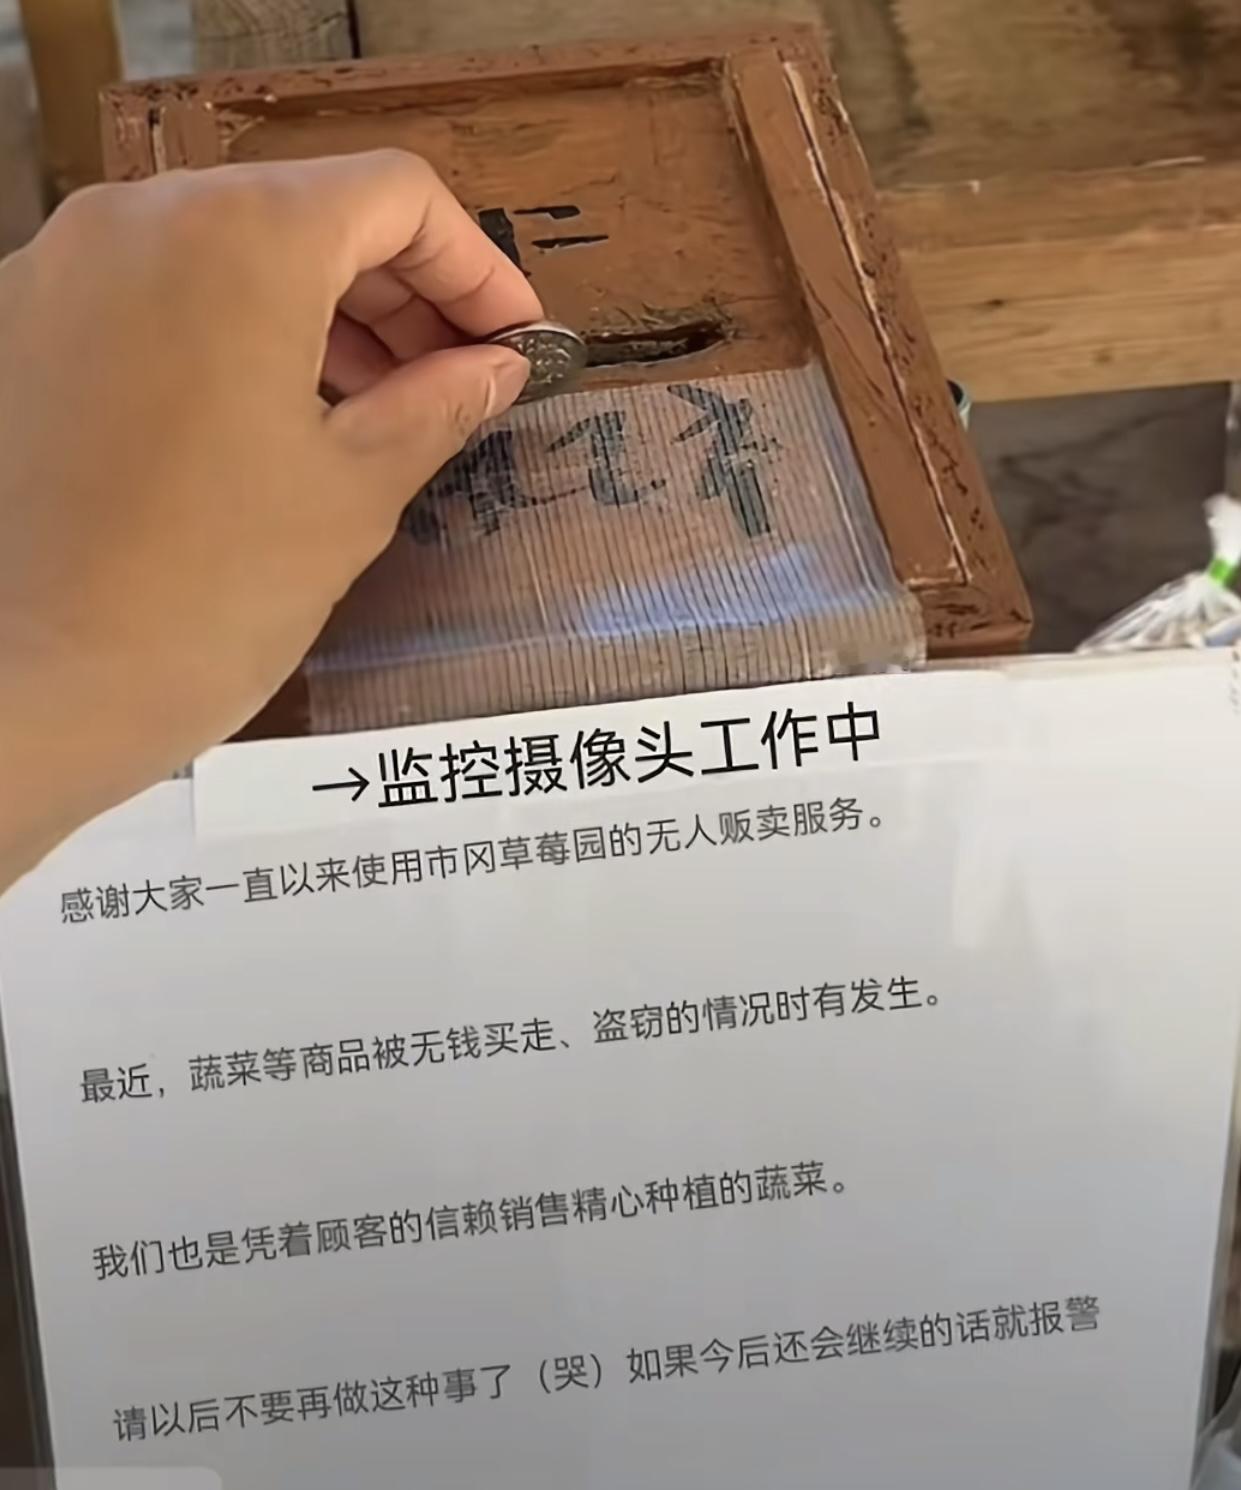 →监控摄像头工作中
感谢大家一直以来使用市冈草莓园的无人贩卖服务。
最近，蔬菜等商品被无钱买走、盗窃的情况时有发生。
我们也是凭着顾客的信赖销售精心种植的蔬菜。
请以后不要再做这种事了（哭）如果今后还会继续的话就报警